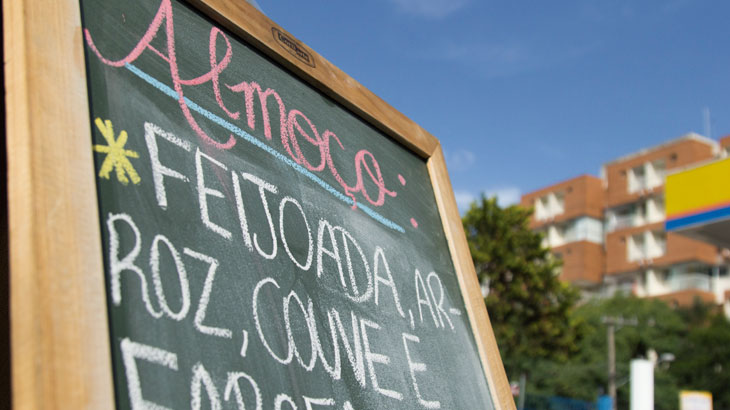 Almoço:
*FEIJOADA, AR-
ROZ, COUVE E